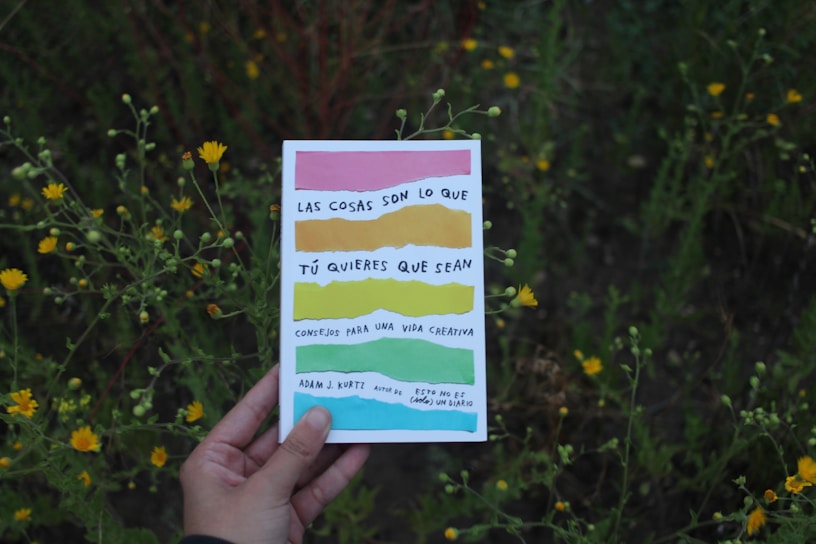 LAS COSAS SON LO QUE
TÚ QUIERES QUE SEAN
CONSEJOS PARA UNA VIDA CREATIVA
ADAM J. KURTZ AUTOR DE ESTO NO ES
(solo) UN DIARIO